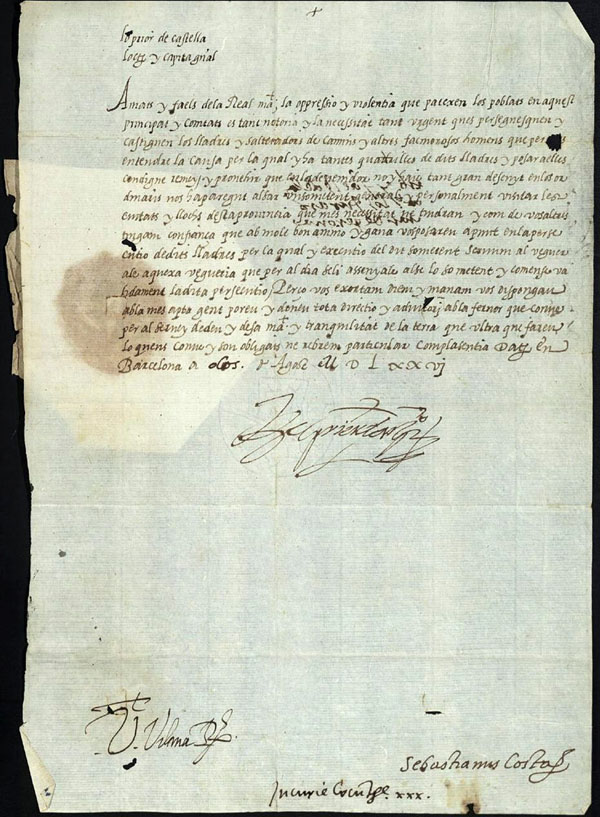 +
lo prior de castella
loctt y capita gnal
Amats y faels dela Real mat, la oppressio y violentia que patexen los poblats en aquest
principat y Comtats es tant notoria y la necessitat tant urgent ques persegnesquen y
castiguen los lladres y salteradors de Camins y altres facinorosos homens que per
entendre la causa per la qual y ha tantes quadrilles de dits lladres y posar aelles
condigne remey y provehir que en lo desvenidor no y haie tant gran desnyt en los or
dinaris nos ha paregut alsar sometent general y personalment visitar les
ciutats y llochs desta provincia que mes necessitat ne tindran y com de vosaltres
tingam confiança que ab molt bon animo y gana vos posareu a punt en la perse
cutio de dits lladres per la qual y executio del dit sometent scrivim al veguer
de aquexa vegueria que per al dia se li assenyale alse lo sometent y comense va
lidament la dita persecutio Perço vos exortam diem y manam vos dispongau
ab la mes apta gent poreu y doneu tota directio y adiutori ab la fervor que conve
per al servey de deu y de sa mat y tranquilitat de la terra que ultra que fareu
lo quens conve y son obligats ne rebrem particular Complasentia Datt en
Barcelona a dos. d Agost M D L xx vj
Vt Viana Rs.
Sebastianus Costa
In curie Locutt xxx.